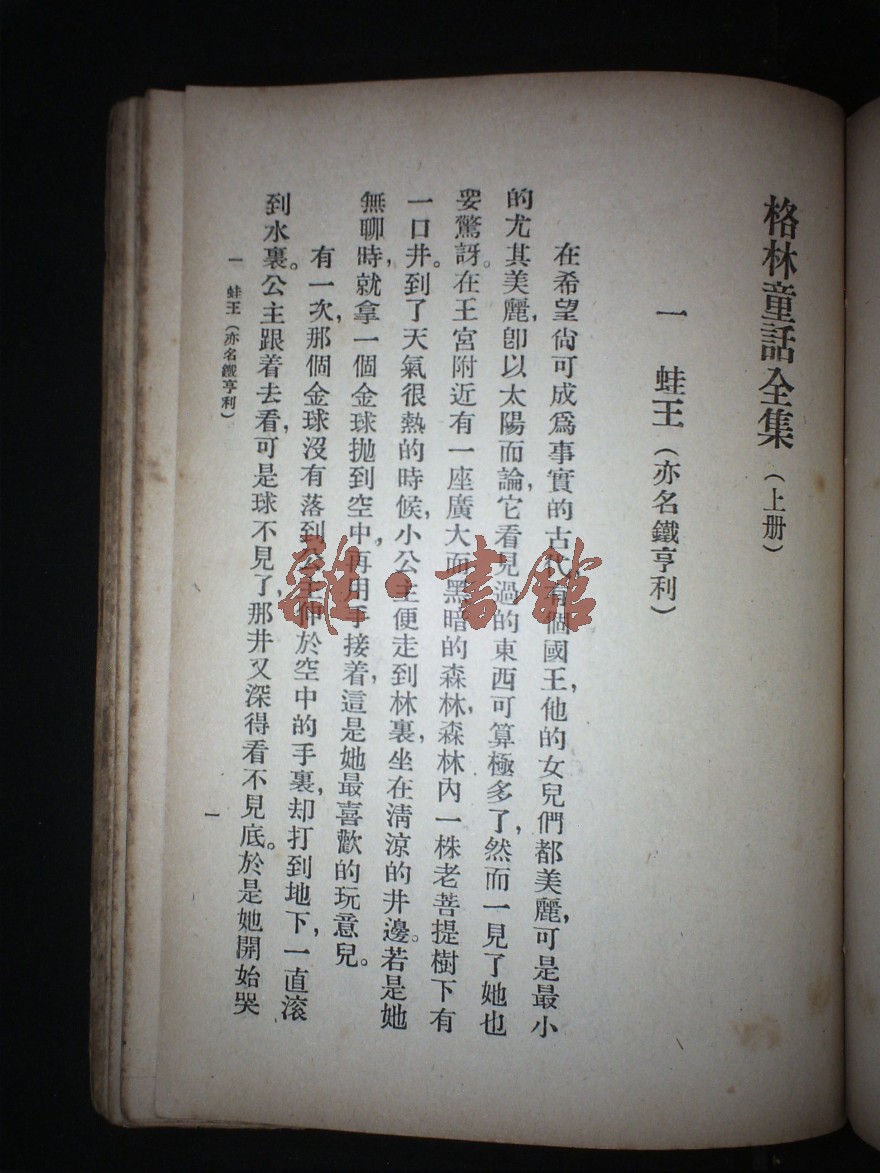 格林童話全集(上册)
一 蛙王(亦名鐵亨利)
在希望尙可成爲事實的古代有個國王,他的女兒們都美麗,可是最小
的尤其美麗,卽以太陽而論,它看見過的東西可算極多了,然而一見了她也
要驚訝。在王宮附近有一座廣大而黑暗的森林,森林內一株老菩提樹下有
一口井。到了天氣很熱的時候,小公主便走到林裏,坐在淸涼的井邊。若是她
無聊時,就拿一個金球拋到空中,再用手接着,這是她最喜歡的玩意兒。
有一次,那個金球沒有落到公主伸於空中的手裏,却打到地下,一直滾
到水裏。公主跟着去看,可是球不見了,那井又深得看不見底。於是她開始哭
一 蛙王(亦名鐵亨利)
一
雜·書館